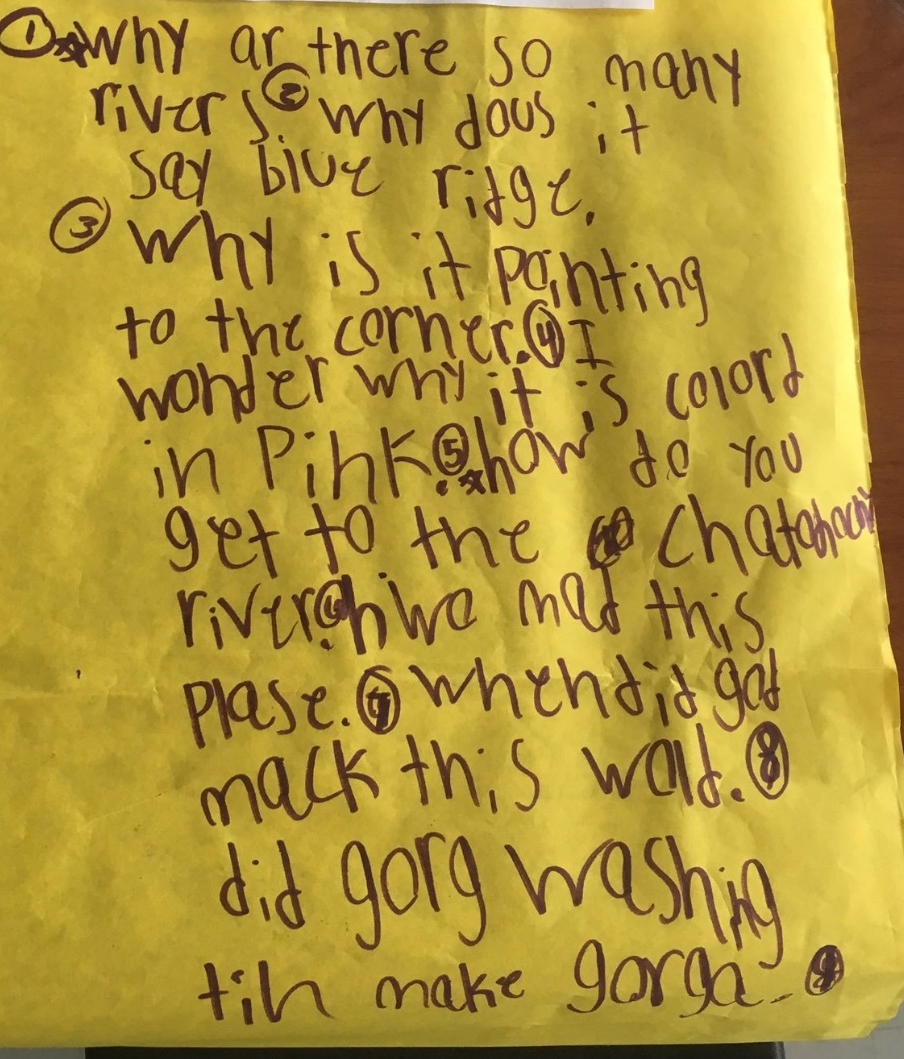 ① ☆Why ar there so many
rivers. ② Why dous it
say blue ridge.
③ Why is it pointing
to the corner. ④ I
wonder why it is colord
in Pink. ⑤ ☆how do you
get to the Chatahoochy
river. ⑥ hwo mad this
plase. ⑦ when did god
mack this wald. ⑧
did gorg washing
tin make gorga. ⑨